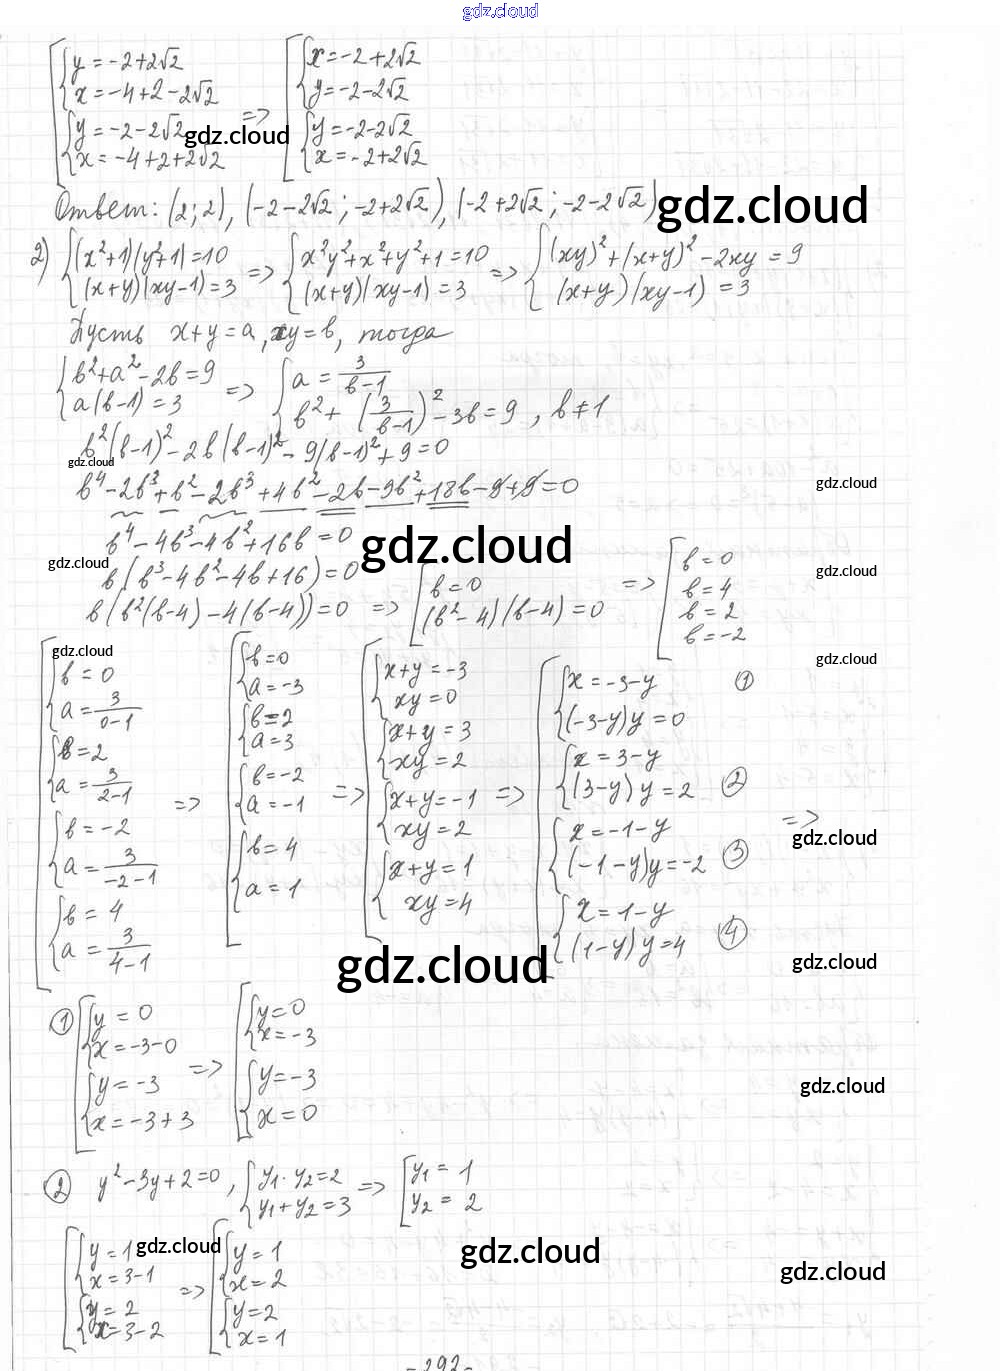 gdz.cloud
y = -2+2√2
x = -4+2-2√2
y = -2-2√2
x = -4+2+2√2
=>
x = -2+2√2
y = -2-2√2
y = -2-2√2
x = -2+2√2
gdz.cloud
Ответ: (2; 2), (-2-2√2; -2+2√2), (-2+2√2; -2-2√2)
gdz.cloud
2) (x²+1)(y²+1)=10 => x²y²+x²+y²+1=10 => (xy)²+(x+y)²-2xy=9
(x+y)(xy-1)=3 (x+y)(xy-1)=3 (x+y)(xy-1)=3
Пусть x+y=a, xy=b, тогда
b²+a²-2b=9 => a = 3/(b-1)
a(b-1)=3 b²+(3/(b-1))²-3b=9, b≠1
b²(b-1)²-2b(b-1)²-9(b-1)²+9=0
gdz.cloud
b⁴-2b³+b²-2b³+4b²-2b-9b²+18b-9+9=0
gdz.cloud
b⁴-4b³-4b²+16b=0
gdz.cloud
gdz.cloud
b(b³-4b²-4b+16)=0
gdz.cloud
b(b²(b-4)-4(b-4))=0 => b=0
(b²-4)(b-4)=0
=> b=0
b=4
b=2
b=-2
gdz.cloud
gdz.cloud
b=0
a=3/(0-1)
b=2
a=3/(2-1)
b=-2
a=3/(-2-1)
b=4
a=3/(4-1)
=>
b=0
a=-3
b=2
a=3
b=-2
a=-1
b=4
a=1
=>
x+y=-3
xy=0
x+y=3
xy=2
x+y=-1
xy=2
x+y=1
xy=4
=>
x=-3-y
(-3-y)y=0 1
x=3-y
(3-y)y=2 2
x=-1-y
(-1-y)y=-2 3
x=1-y
(1-y)y=4 4
=>
gdz.cloud
gdz.cloud
gdz.cloud
1 y=0
x=-3-0
y=-3
x=-3+3
=>
y=0
x=-3
y=-3
x=0
gdz.cloud
2 y²-3y+2=0, y₁·y₂=2 => y₁=1
y₁+y₂=3 y₂=2
y=1
x=3-1
y=2
x=3-2
gdz.cloud
=>
y=1
x=2
y=2
x=1
gdz.cloud
gdz.cloud
-292-